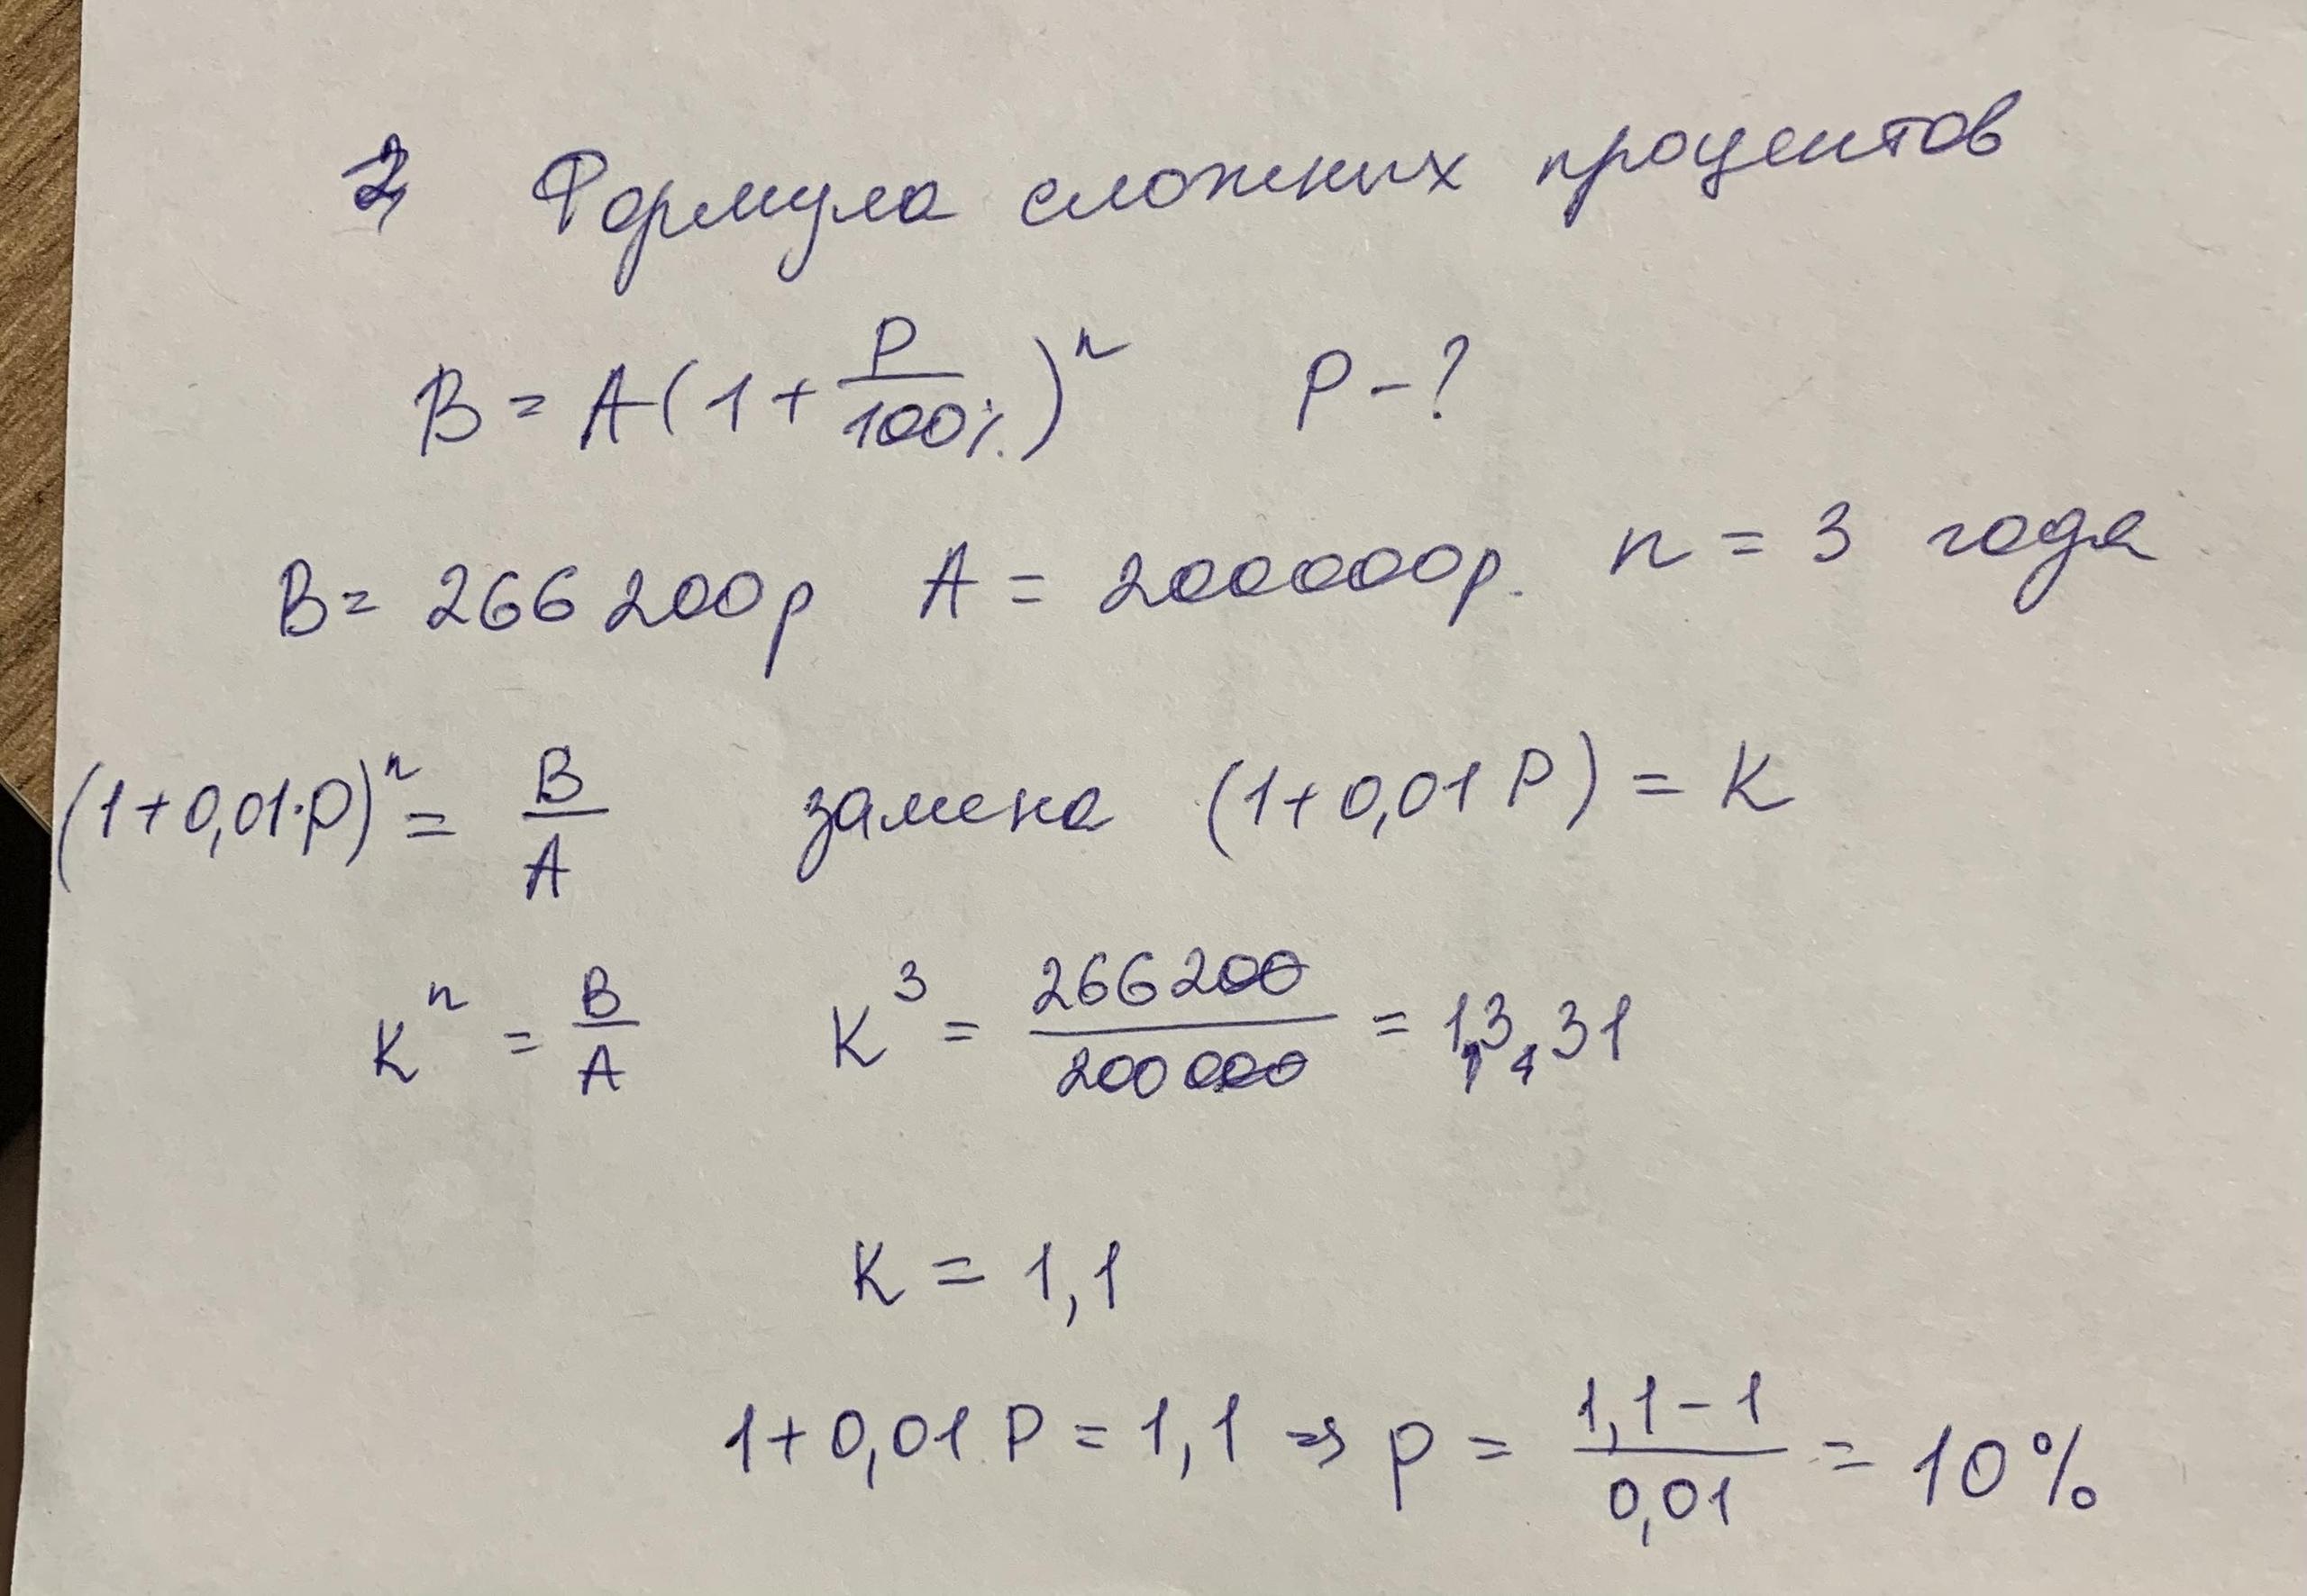 2 Формула сложных процентов
B = A(1 + P/100%)^n P - ?
B = 266 200р A = 200000р. n = 3 года
(1+0,01·P)^n = B/A замена (1+0,01P) = K
K^n = B/A K^3 = 266200/200000 = 1,331
K = 1,1
1+0,01P = 1,1 => P = (1,1-1)/0,01 = 10%